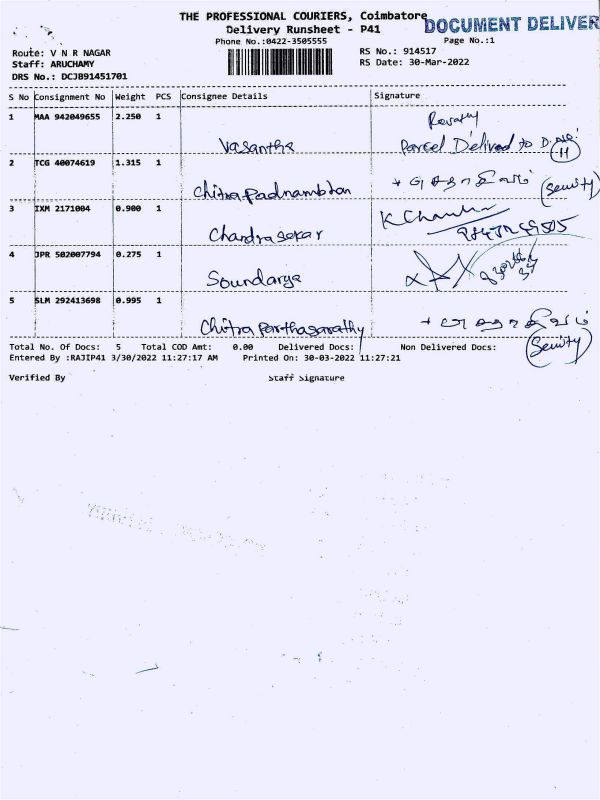 THE PROFESSIONAL COURIERS, Coimbatore
DOCUMENT DELIVER
Delivery Runsheet - P41
Phone No.:0422-3505555
Page No.:1
Route: V N R NAGAR
RS No.: 914517
Staff: ARUCHAMY
RS Date: 30-Mar-2022
DRS No.: DCJB91451701
S No Consignment No Weight PCS Consignee Details Signature
1 MAA 942049655 2.250 1
Revathy
Vasantha Parcel Delived to D.No: 11
2 TCG 40074619 1.315 1
Chitra Padnambhan (Seuity)
3 IXM 2171004 0.900 1
Chandrasekar
4 JPR 502007794 0.275 1
Soundarya
5 SLM 292413698 0.995 1
Chitra Parthasarathy
(Seuity)
Total No. Of Docs: 5 Total COD Amt: 0.00 Delivered Docs: Non Delivered Docs:
Entered By :RAJIP41 3/30/2022 11:27:17 AM Printed On: 30-03-2022 11:27:21
Verified By Staff Signature